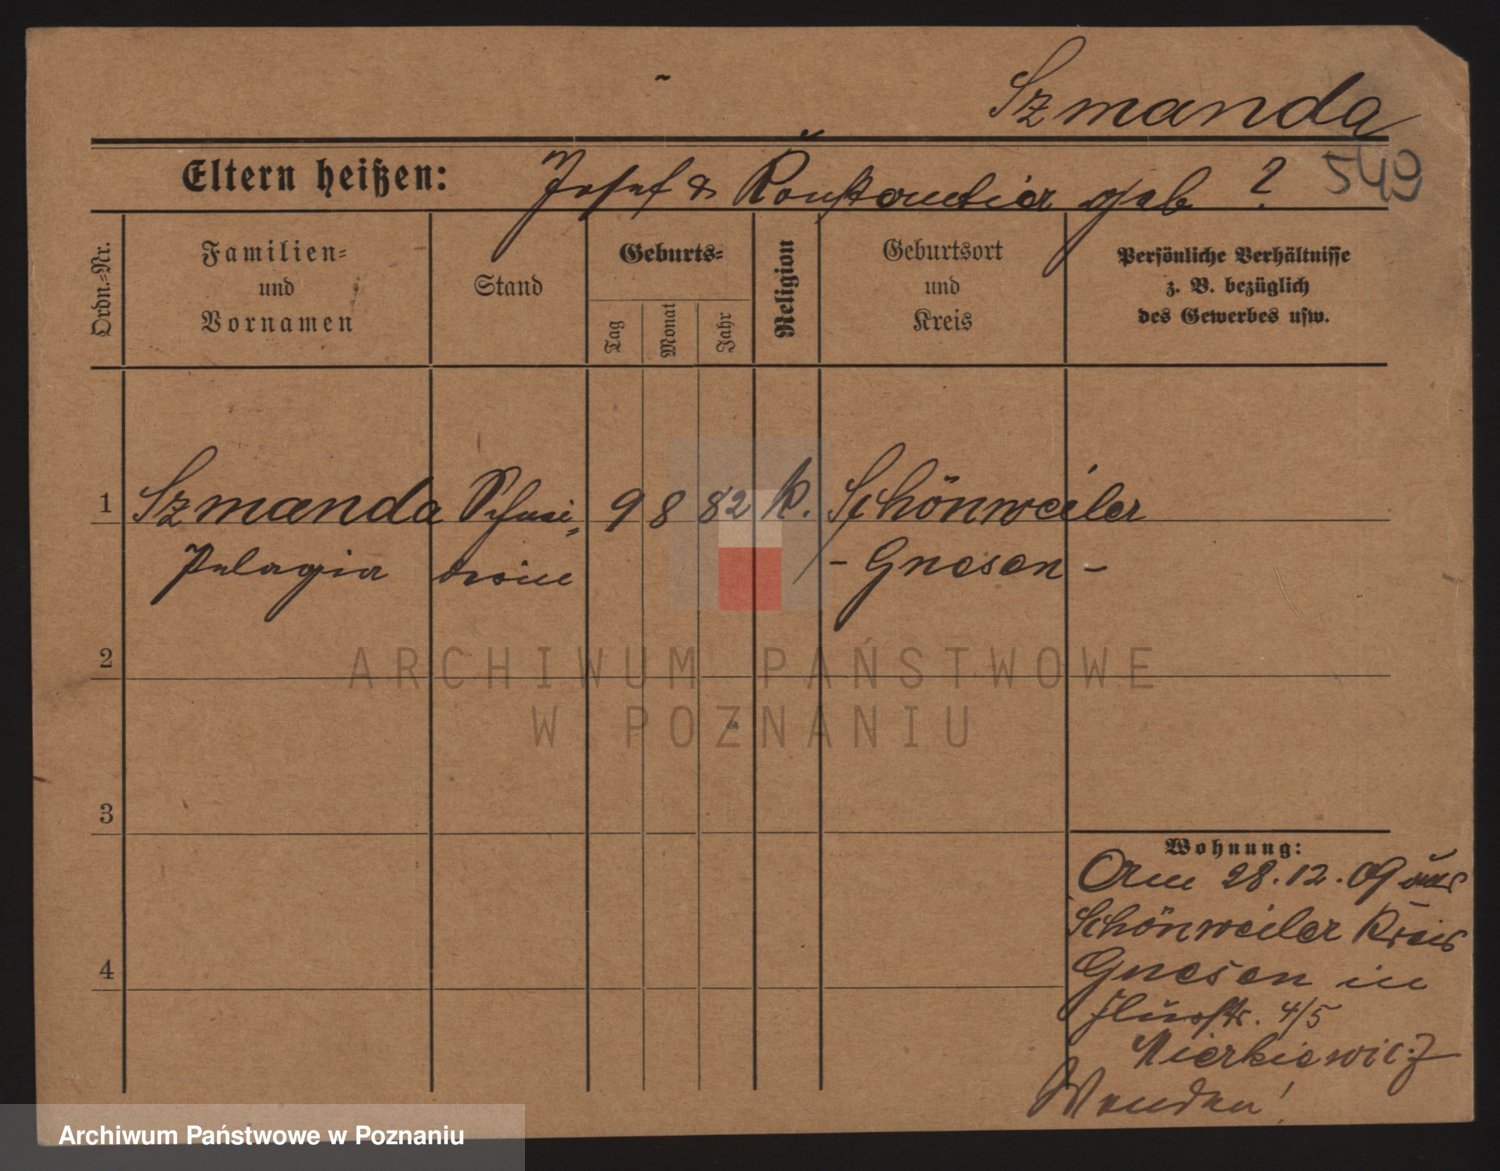 Szmanda
549
Eltern heißen: Josef & Konstantia geb ?
Ordn.=Nr.
Familien=
und
Vornamen
Stand
Geburts=
Tag
Monat
Jahr
Religion
Geburtsort
und
Kreis
Persönliche Verhältnisse
z. B. bezüglich
des Gewerbes usw.
1 Szmanda Schnei= 9 8 82 k. Schönweiler
Pelagia derin - Gnesen -
2
ARCHIWUM PAŃSTWOWE
W POZNANIU
3
Wohnung:
Am 28.12.09 aus
Schönweiler Kreis
4
Gnesen in
4/5
Wenden!
Archiwum Państwowe w Poznaniu